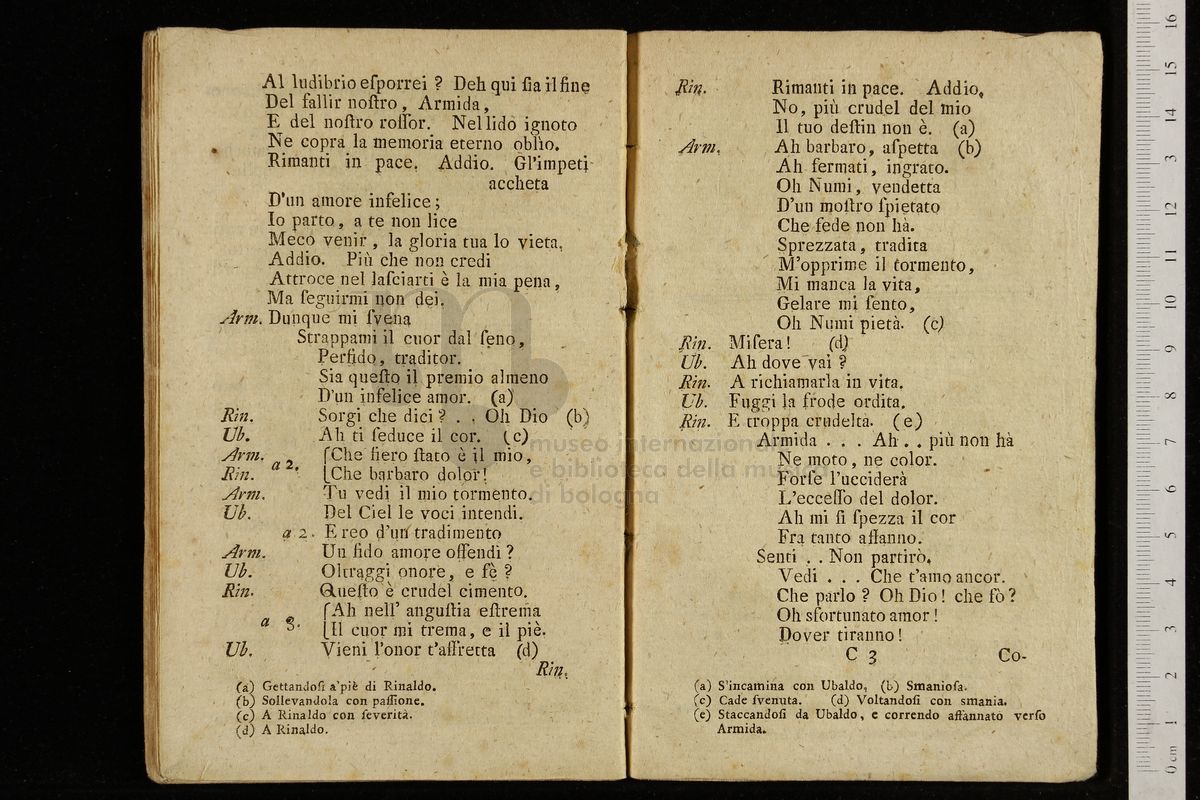 Al ludibrio eſporrei ? Deh qui ſia il fine
Del fallir noſtro, Armida,
E del noſtro roſſor. Nel lido ignoto
Ne copra la memoria eterno oblìo.
Rimanti in pace. Addio. Gl'impeti
accheta
D'un amore infelice;
Io parto, a te non lice
Meco venir, la gloria tua lo vieta.
Addio. Più che non credi
Attroce nel laſciarti è la mia pena,
Ma ſeguirmi non dei.
Arm. Dunque mi ſvena
Strappami il cuor dal ſeno,
Perfido, traditor.
Sia queſto il premio almeno
D'un infelice amor. (a)
Rin. Sorgi che dici ? . . Oh Dio (b)
Ub. Ah ti ſeduce il cor. (c)
Arm. Che fiero ſtato è il mio,
a 2.
Rin. Che barbaro dolor!
Arm. Tu vedi il mio tormento.
Ub. Del Ciel le voci intendi.
a 2. E reo d'un tradimento
Arm. Un fido amore offendi ?
Ub. Oltraggi onore, e fè ?
Rin. Queſto è crudel cimento.
Ah nell' anguſtia eſtrema
a 3.
Il cuor mi trema, e il piè.
Ub. Vieni l'onor t'affretta (d)
Rin.
(a) Gettandoſi a'piè di Rinaldo.
(b) Sollevandola con paſſione.
(c) A Rinaldo con ſeverità.
(d) A Rinaldo.
Rin. Rimanti in pace. Addio.
No, più crudel del mio
Il tuo deſtin non è. (a)
Arm. Ah barbaro, aſpetta (b)
Ah fermati, ingrato.
Oh Numi, vendetta
D'un moſtro ſpietato
Che fede non hà.
Sprezzata, tradita
M'opprime il tormento,
Mi manca la vita,
Gelare mi ſento,
Oh Numi pietà. (c)
Rin. Miſera! (d)
Ub. Ah dove vai ?
Rin. A richiamarla in vita.
Ub. Fuggi la frode ordita.
Rin. E troppa crudeltà. (e)
Armida . . . Ah . . più non hà
Ne moto, ne color.
Forſe l'ucciderà
L'ecceſſo del dolor.
Ah mi ſi ſpezza il cor
Fra tanto affanno.
Senti . . Non partirò.
Vedi . . . Che t'amo ancor.
Che parlo ? Oh Dio! che fò ?
Oh sfortunato amor!
Dover tiranno!
C 3 Co-
(a) S'incamina con Ubaldo, (b) Smanioſa.
(c) Cade ſvenuta. (d) Voltandoſi con smania.
(e) Staccandoſi da Ubaldo, e correndo affannato verſo
Armida.
museo internazionale
e biblioteca della musica
di bologna
0 cm 1 2 3 4 5 6 7 8 9 10 11 12 13 14 15 16